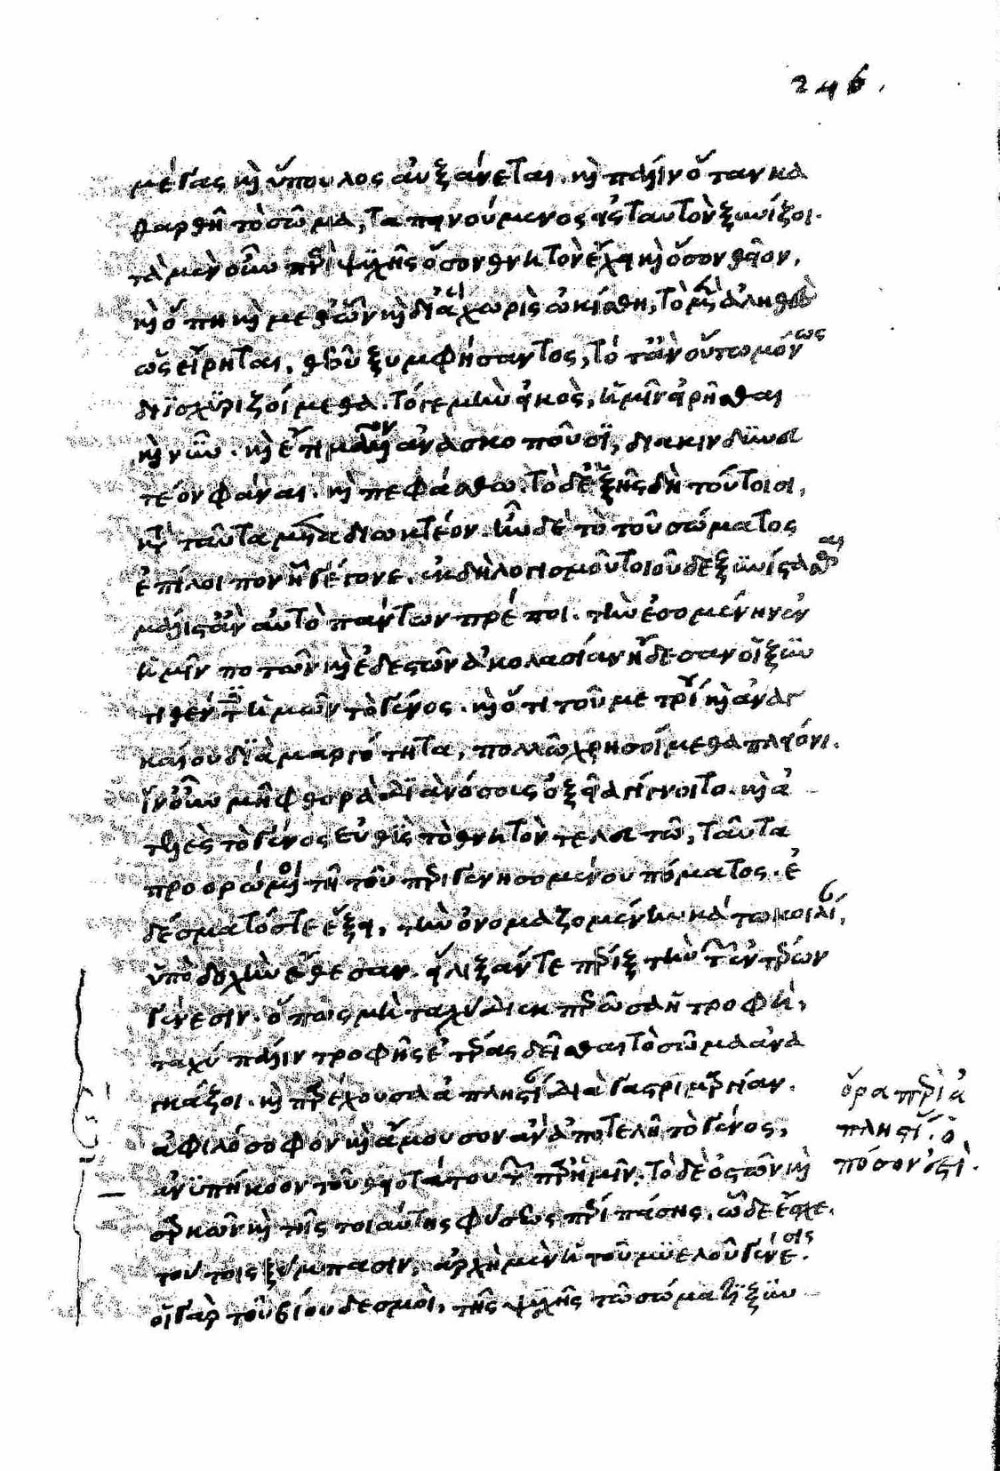 246.
μέγας καὶ ὕπουλος αὐξάνεται. καὶ πάλιν ὅταν κα
θαρθῆ τὸ σῶμα, ταπεινούμενος εἰς ταυτὸν ξυνίζοι.
τὰ μὲν οὖν περὶ ψυχῆς ὅσον θνητὸν ἔχει καὶ ὅσον θεῖον,
καὶ ὅπη καὶ μεθ' ὧν καὶ δι' ἃ χωρὶς ὠκίσθη, τὸ μὲν ἀληθὲς
ὡς εἴρηται, θεοῦ ξυμφήσαντος, τότ' ἂν οὕτω μόνως
διϊσχυριζοίμεθα. τό γε μὴν εἰκὸς, ἡμῖν εἰρῆσθαι
καὶ νῦν. καὶ ἔτι μᾶλλον ἀνασκοποῦσι, διακινδυνευ
τέον φάναι. καὶ πεφάσθω. τὸ δ' ἑξῆς δὴ τούτοισι,
κατὰ ταῦτα μεταδιωκτέον. ἦν δὲ τὸ τοῦ σώματος
ἐπίλοιπον ἧ γέγονε. ἐκ δὴ λογισμοῦ τοιοῦδε ξυνίστασθαι
μάλιστ' ἂν αὐτὸ πάντων πρέποι. τὴν ἐσομένην ἐν
ἡμῖν ποτῶν καὶ ἐδεστῶν ἀκολασίαν ἤδεσαν οἱ ξυν
τιθέντες ἡμῶν τὸ γένος. καὶ ὅτι τοῦ μετρίου καὶ ἀναγ
καίου διὰ μαργότητα, πολλῶ χρησοίμεθα πλέονι.
ἵν' οὖν μὴ φθορὰ διὰ νόσους ὀξεῖα γίγνοιτο. καὶ ἀ
τελὲς τὸ γένος εὐθὺς τὸ θνητὸν τελευτῶ, ταῦτα
προορώμενοι τῆ τοῦ περιγενησομένου πόματος. ἐ
δέσματός τε ἕξει, τὴν ὀνομαζομένην κάτω κοιλίαν,
ὑποδοχὴν ἔθεσαν. εἵλιξάν τε πέριξ τὴν τῶν ἐντέρων
γένεσιν. ὅπως μὴ ταχὺ διεκπερῶσα ἡ τροφὴ,
ταχὺ πάλιν τροφῆς ἑτέρας δεῖσθαι τὸ σῶμα ἀνα
γκάζοι. καὶ παρέχουσα ἀπληστίαν διὰ γαστριμαργίαν.
ἀφιλόσοφον καὶ ἄμουσον ἂν ἀποτελῆ τὸ γένος,
ἀνυπήκοον τοῦ θειοτάτου τῶν παρ' ἡμῖν. τὸ δὲ ὀστῶν καὶ
σαρκῶν καὶ τῆς τοιαύτης φύσεως περὶ πάσης, ὧδε ἔσχε.
τούτοις ξύμπασιν, ἀρχὴ μὲν ἡ τοῦ μυελοῦ γένεσις.
οἱ γὰρ τοῦ βίου δεσμοὶ, τῆς ψυχῆς τῶ σώματι ξυν
ὅρα περὶ ἀ
πληστίας. ὁ
πόσον ἐστὶ.